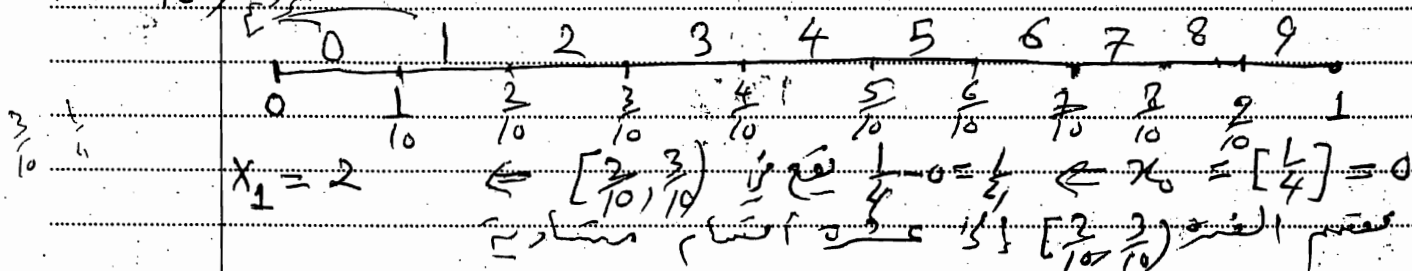 0 1 2 3 4 5 6 7 8 9
0 1/10 2/10 3/10 4/10 5/10 6/10 7/10 8/10 9/10 1
3/10 1/4
x₀ = [1/4] = 0 ⇐ 1/4 - 0 = 1/4 تقع في [2/10, 3/10) ⇐ X₁ = 2
نقسم الفترة [2/10, 3/10) إلى عشرة أقسام متساوية